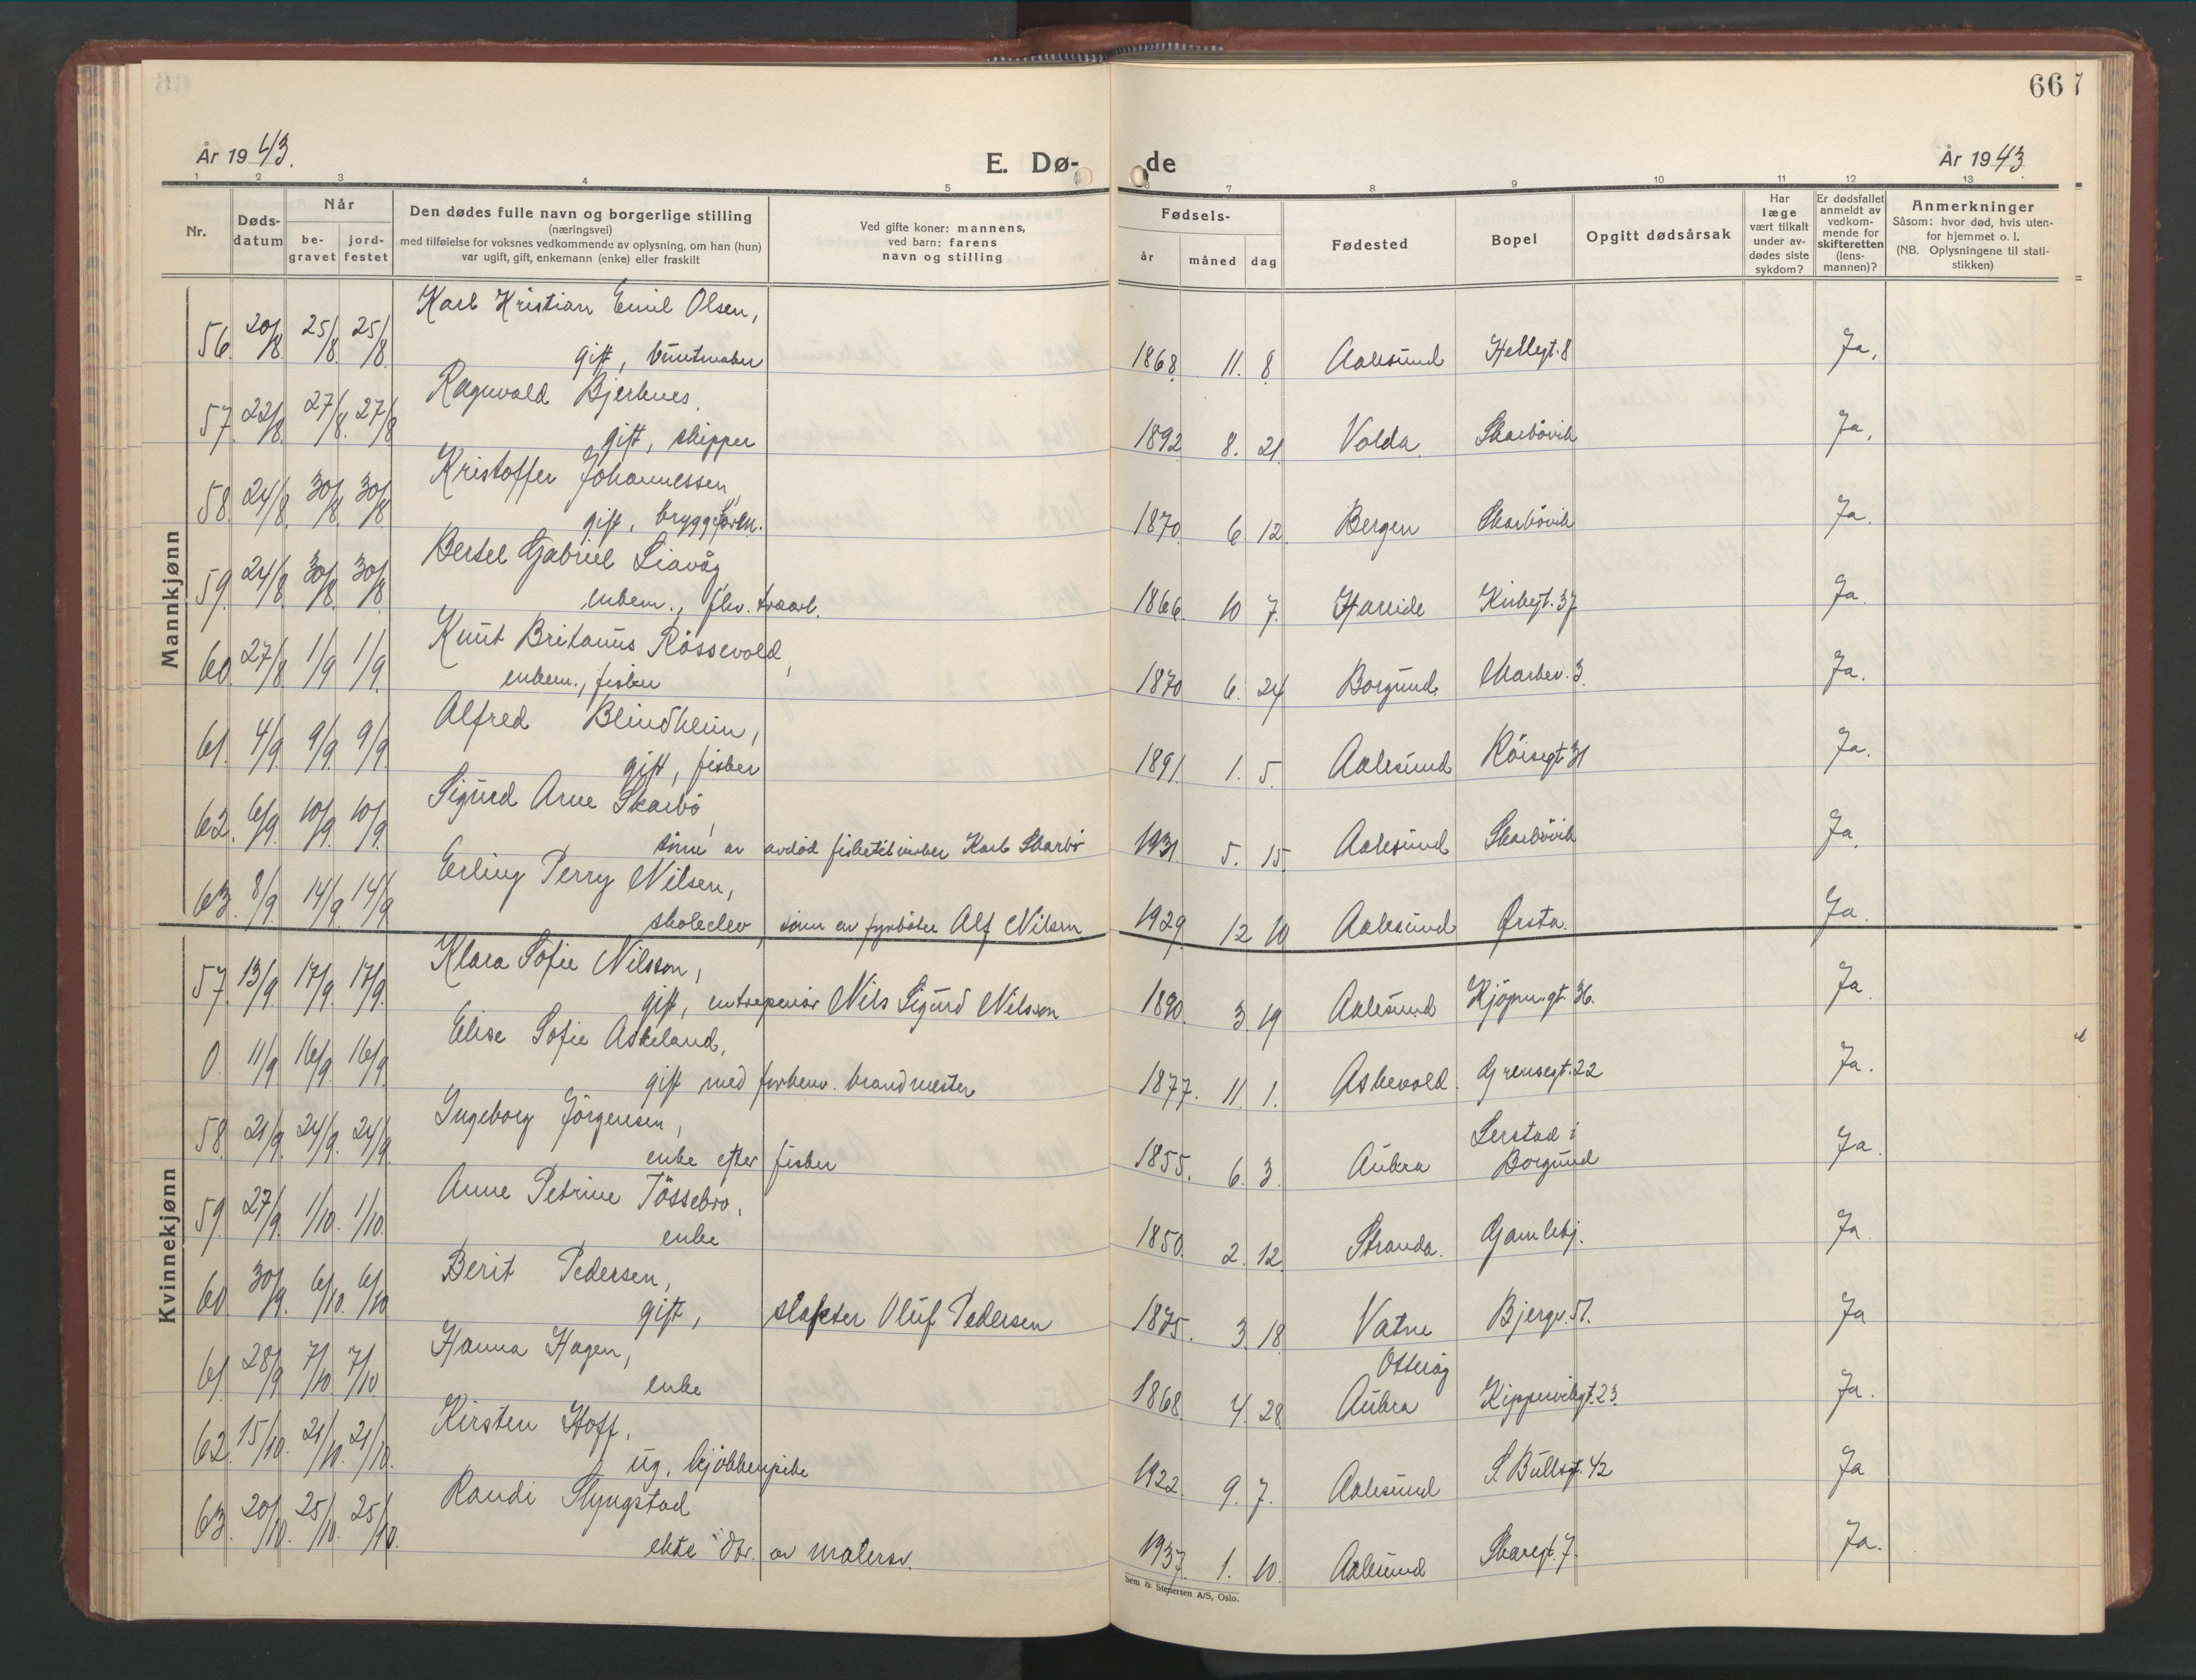 66
667
År 1943.
E. Dø-
de
År 1943
1 2 3 4 5 6 7 8 9 10 11 12 13
Nr.
Døds-
datum
Når
be-
gravet
jord-
festet
Den dødes fulle navn og borgerlige stilling
(næringsvei)
med tilføielse for voksnes vedkommende av oplysning, om han (hun)
var ugift, gift, enkemann (enke) eller fraskilt
Ved gifte koner: mannens,
ved barn: farens
navn og stilling
Fødsels-
år måned dag
Fødested
Bopel
Opgitt dødsårsak
Har
læge
vært tilkalt
under av-
dødes siste
sykdom?
Er dødsfallet
anmeldt av
vedkom-
mende for
skifteretten
(lens-
mannen)?
Anmerkninger
Såsom: hvor død, hvis uten-
for hjemmet o. l.
(NB. Oplysningene til stati-
stikken)
Mannkjønn
Karl Kristian Emil Olsen,
56. 20/8. 25/8. 25/8. gift, buntmaker 1868. 11. 8. Aalesund Hellegt. 8 Ja.
Ragnvald Bjerknes,
57. 22/8. 27/8. 27/8 gift, skipper 1892. 8. 21. Volda. Skarbövik Ja.
Kristoffer Johannessen,
58. 24/8. 30/8. 30/8 gift, bryggeform. 1870. 6. 12. Bergen Skarbövik Ja.
Bertel Gabriel Liavåg
59. 24/8. 30/8. 30/8 enkem., fhv. 1866. 10 7. Hareide Kirkegt. 37 Ja.
Knut Britanus Røssevold,
60. 27/8 1/9 1/9. enkem., fisker 1870 6. 24 Borgund. Skarbev. 3. Ja.
Alfred Blindheim,
61. 4/9. 9/9. 9/9. gift, fisker 1891. 1. 5. Aalesund Röisegt. 31 Ja.
Sigurd Arne Skarbö,
62. 6/9. 10/9. 10/9. sönn av avdöd fisketilvirker Karl Skarbö 1931. 5. 15. Aalesund Skarbövik Ja.
Erling Perry Nilsen,
63. 8/9. 14/9. 14/9. skoleelev, sönn av fyrböter Alf Nilsen 1929. 12 10 Aalesund Ørsta. Ja.
Kvinnekjønn
Klara Sofie Nilsson,
57. 13/9. 17/9. 17/9. gift, entrepenör Nils Sigurd Nilsson 1890. 3. 19 Aalesund Kjöpm.gt. 36. Ja
Elise Sofie Askeland,
0. 11/9. 16/9. 16/9. gift med forhenv. brandmester 1877. 11. 1. Askevold. Grensegt. 22 Ja.
Ingeborg Jörgensen,
58. 21/9. 24/9. 24/9. enke efter fisker 1855. 6. 3. Aukra Lerstad i
Borgund Ja.
Anne Petrine Tössebro,
59. 27/9. 1/10. 1/10. enke 1850. 2. 12. Stranda. Gamlehj. Ja.
Berit Pedersen,
60. 30/9. 6/10. 6/10. gift, slakter Oluf Pedersen 1875. 3. 18. Vatne Bjergv. 51. Ja
Hanna Hagen,
61. 28/9 7/10 7/10. enke 1868 4. 28 Otteröy
Aukra Kippervikgt. 23. Ja.
Kirsten Hoff,
62. 15/10. 21/10. 21/10. ug. kjökkenpike 1922. 9. 7. Aalesund S. Bullsgt. 42 Ja
Randi Slyngstad
63. 20/10. 25/10. 25/10. ekte dtr. av matersv. 1937. 1. 10. Aalesund Skaregt. 7. Ja.
Sem & Stenersen A/S, Oslo.